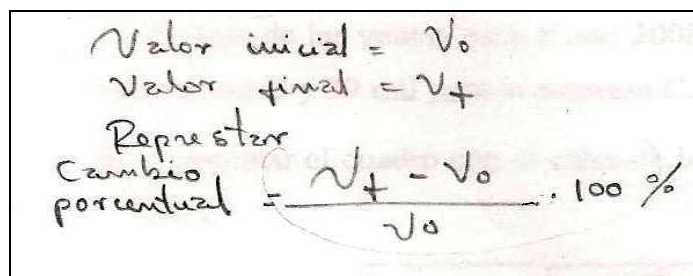 Valor inicial = Vo
Valor final = Vf
Represtar
Cambio
porcentual = Vf - Vo / Vo . 100 %